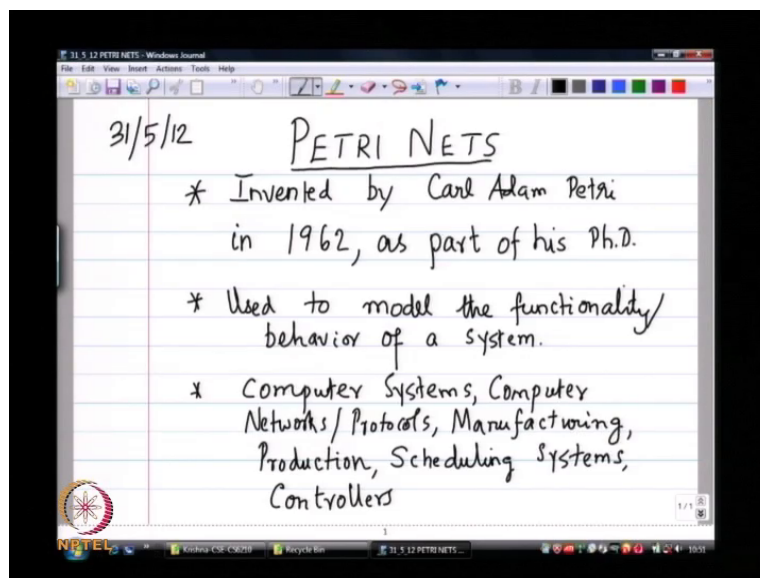 31_5_12 PETRI NETS - Windows Journal
File Edit View Insert Actions Tools Help
B I
31/5/12 PETRI NETS
* Invented by Carl Adam Petri
in 1962, as part of his Ph.D.
* Used to model the functionality/
behavior of a system.
* Computer Systems, Computer
Networks/Protocols, Manufacturing,
Production, Scheduling Systems,
Controllers
1/1
1
NPTEL
Krishna-CSE-CS6210 Recycle Bin 31_5_12 PETRI NETS ... 10:51